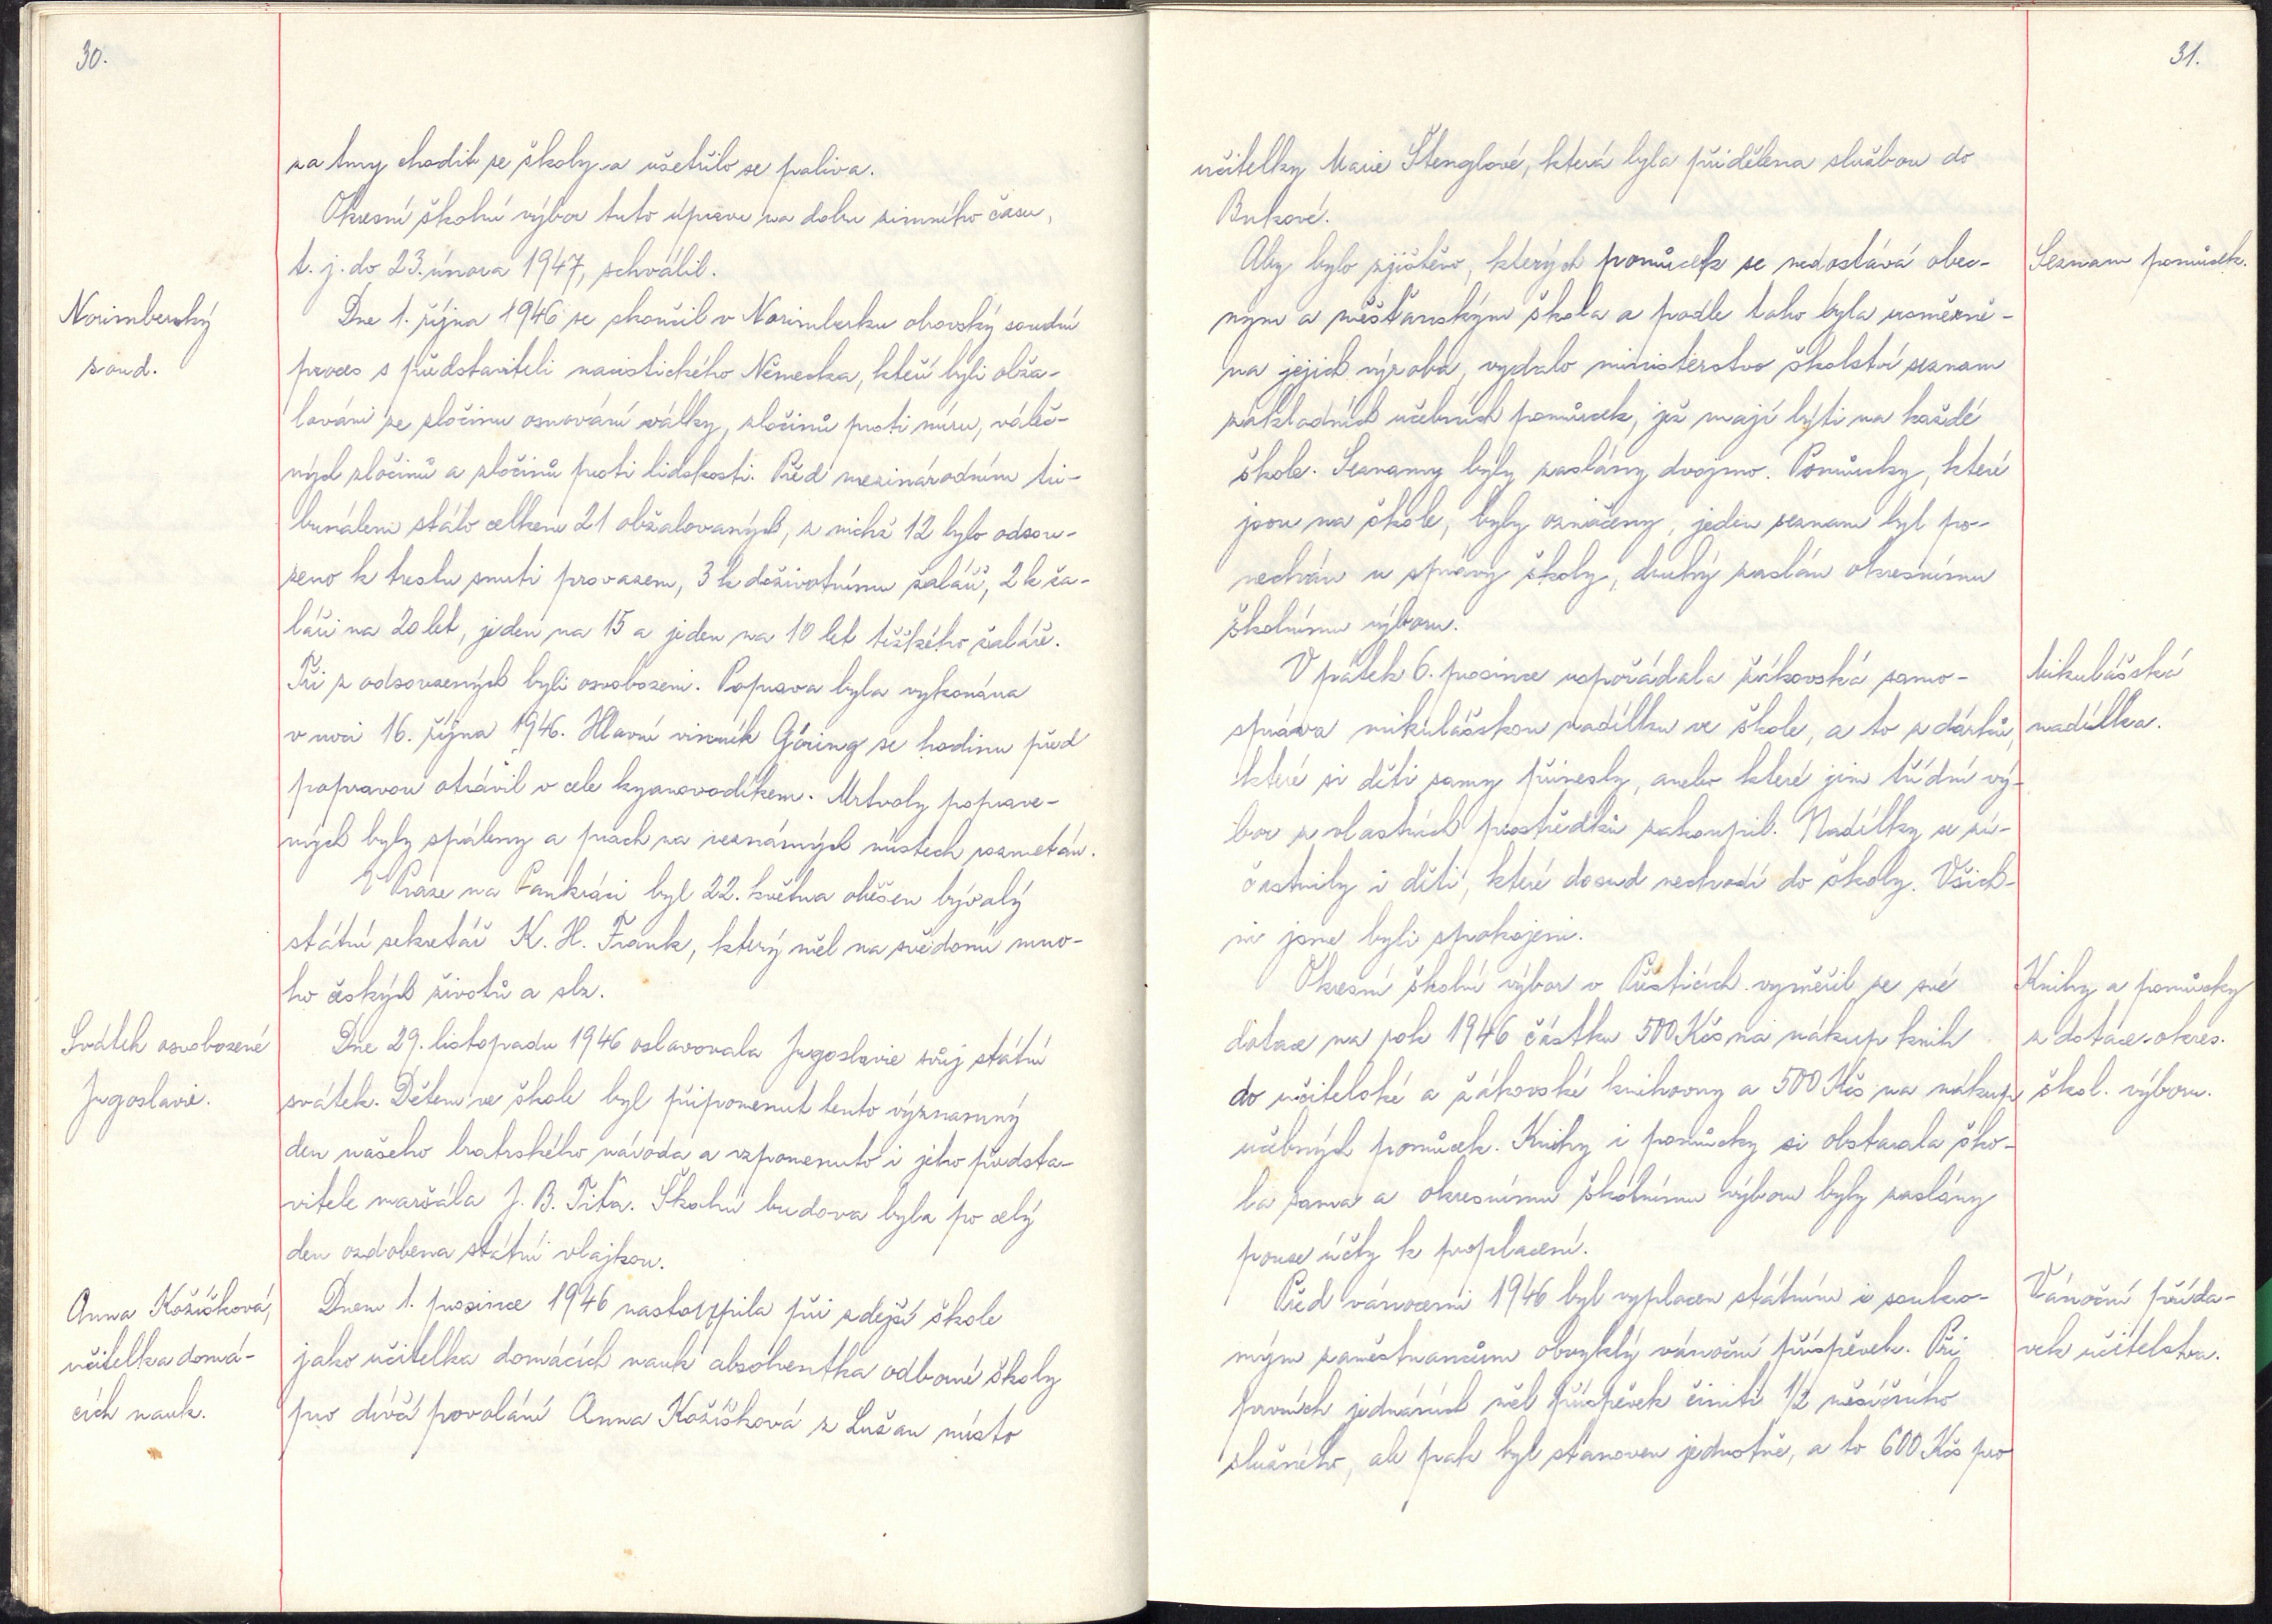 30.
za tmy chodit ze školy a ušetřilo se paliva.
Okresní školní výbor tuto úpravu na dobu zimního času,
t. j. do 23. února 1947, schválil.
Norimberský
soud.
Dne 1. října 1946 se skončil v Norimberku obrovský soudní
proces s představiteli nacistického Německa, kteří byli obža-
lováni ze zločinu osnování války, zločinů proti míru, váleč-
ných zločinů a zločinů proti lidskosti. Před mezinárodním tri-
bunálem stálo celkem 21 obžalovaných, z nichž 12 bylo odsou-
zeno k trestu smrti provazem, 3 k doživotnímu žaláři, 2 k ža-
láři na 20 let, jeden na 15 a jeden na 10 let těžkého žaláře.
Tři z odsouzených byli osvobozeni. Poprava byla vykonána
v noci 16. října 1946. Hlavní viník Göring se hodinu před
popravou otrávil v cele kyanovodíkem. Mrtvoly poprave-
ných byly spáleny a prach na neznámých místech rozmetán.
V Praze na Pankráci byl 22. května oběšen bývalý
státní sekretář K. H. Frank, který měl na svědomí mno-
ho českých životů a slz.
Svátek osvobozené
Jugoslavie.
Dne 29. listopadu 1946 oslavovala Jugoslavie svůj státní
svátek. Dětem ve škole byl připomenut tento významný
den našeho bratrského národa a vzpomenuto i jeho předsta-
vitele maršála J. B. Tita. Školní budova byla po celý
den ozdobena státní vlajkou.
Anna Kožíšková,
učitelka domá-
cích nauk.
Dnem 1. prosince 1946 nastoupila při zdejší škole
jako učitelka domácích nauk absolventka odborné školy
pro dívčí povolání Anna Kožíšková z Lužan místo
31.
učitelky Marie Štenglové, která byla přidělena službou do
Bukové.
Seznam pomůcek.
Aby bylo zjištěno, kterých pomůcek se nedostává obec-
ným a měšťanským škola a podle toho byla usměrně-
na jejich výroba, vydalo ministerstvo školství seznam
základních učebních pomůcek, jež mají býti na každé
škole. Seznamy byly zaslány dvojmo. Pomůcky, které
jsou na škole, byly označeny, jeden seznam byl po-
nechán u správy školy, druhý zaslán okresnímu
školnímu výboru.
Mikulášská
nadílka.
V pátek 6. prosince uspořádala žákovská samo-
správa mikulášskou nadílku ve škole, a to z dárků,
které si děti samy přinesly, anebo které jim třídní vý-
bor z vlastních prostředků zakoupil. Nadílky se zú-
častnily i děti, které dosud nechodí do školy. Všich-
ni jsme byli spokojeni.
Knihy a pomůcky
z dotace okres.
škol. výboru.
Okresní školní výbor v Přešticích vyměřil ze své
dotace na rok 1946 částku 500 Kčs na nákup knih
do učitelské a žákovské knihovny a 500 Kčs na nákup
učebných pomůcek. Knihy i pomůcky si obstarala ško-
la sama a okresnímu školnímu výboru byly zaslány
pouze účty k proplacení.
Vánoční přída-
vek učitelstva.
Před vánocemi 1946 byl vyplacen státním i soukro-
mým zaměstnancům obvyklý vánoční příspěvek. Při
prvních jednáních měl příspěvek činiti 1/2 měsíčního
služného, ale pak byl stanoven jednotně, a to 600 Kčs pro